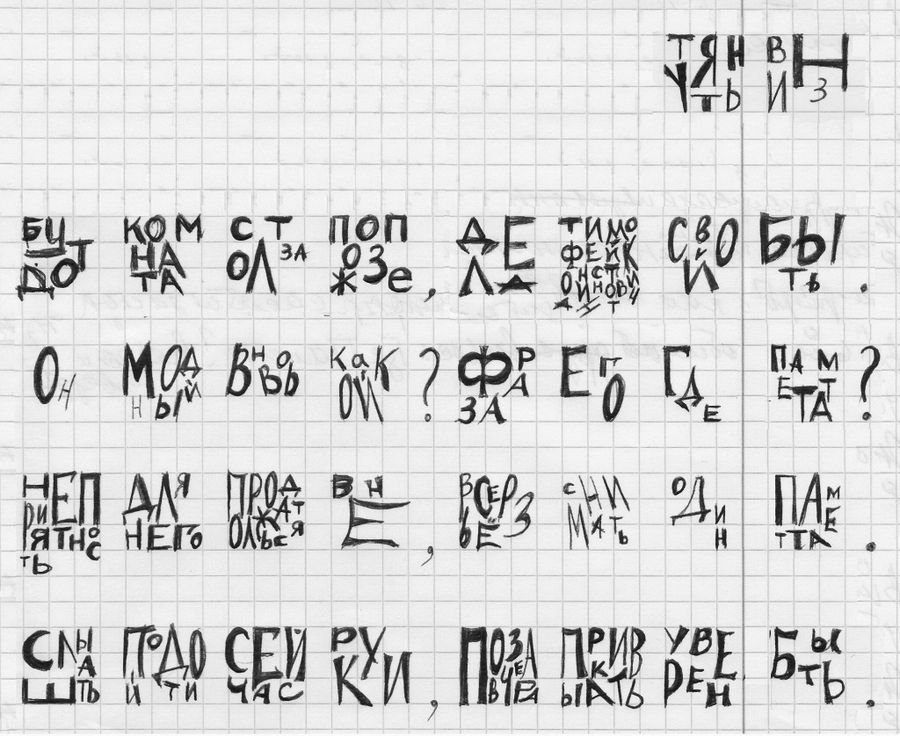 ТЯНУТЬ ВНИЗ
БУДТО КОМНАТА СТОЛ ЗА ПОПОЗЖе, ДЕЛА ТИМОФЕЙ КОНСТАНТИНОВИЧ СВОЙ БЫТЬ.
Он МОДНЫЙ ВНОВЬ КаКОЙ? ФРАЗА ЕГО ГДЕ ПАМЕТТА?
НЕПРИЯТНОСТЬ ДЛЯ НЕГО ПРОДОЛЖАТЬСЯ ВНЕ, ВСЕРЬЁЗ СНИМАТЬ ОДИН ПАМЕТТА.
СЛЫШАТЬ ПОДОЙТИ СЕЙЧАС РУКИ, ПОЗАВЧЕРА ПРИВЫКАТЬ УВЕРЕН БЫТЬ.